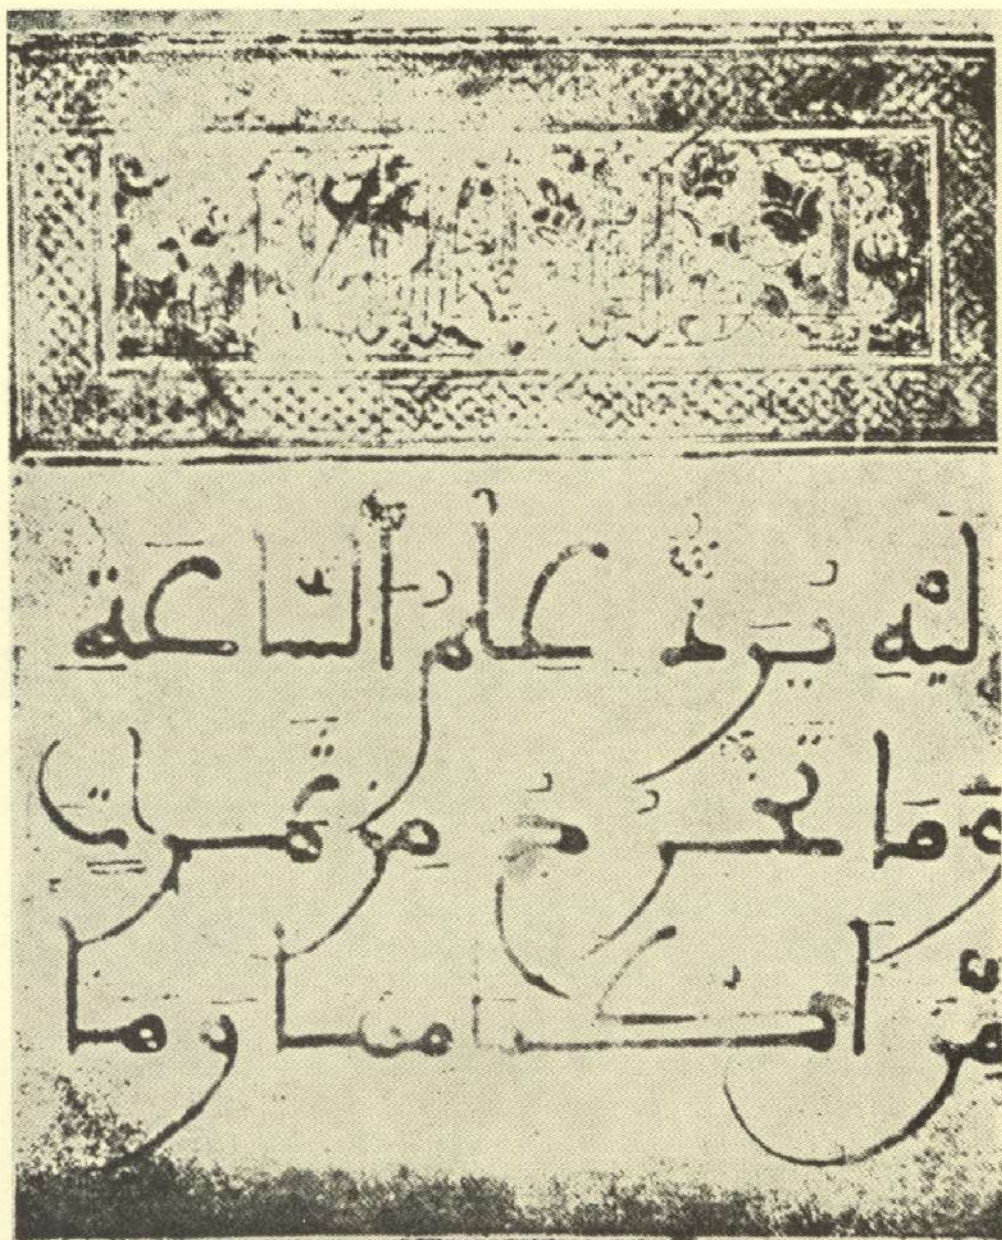 لَيْهِ يُرَدُّ عِلْمُ ٱلسَّاعَةِ
وَمَا تَخْرُجُ مِن ثَمَرَاتٍ
مِّنْ أَكْمَامِهَا وَمَا